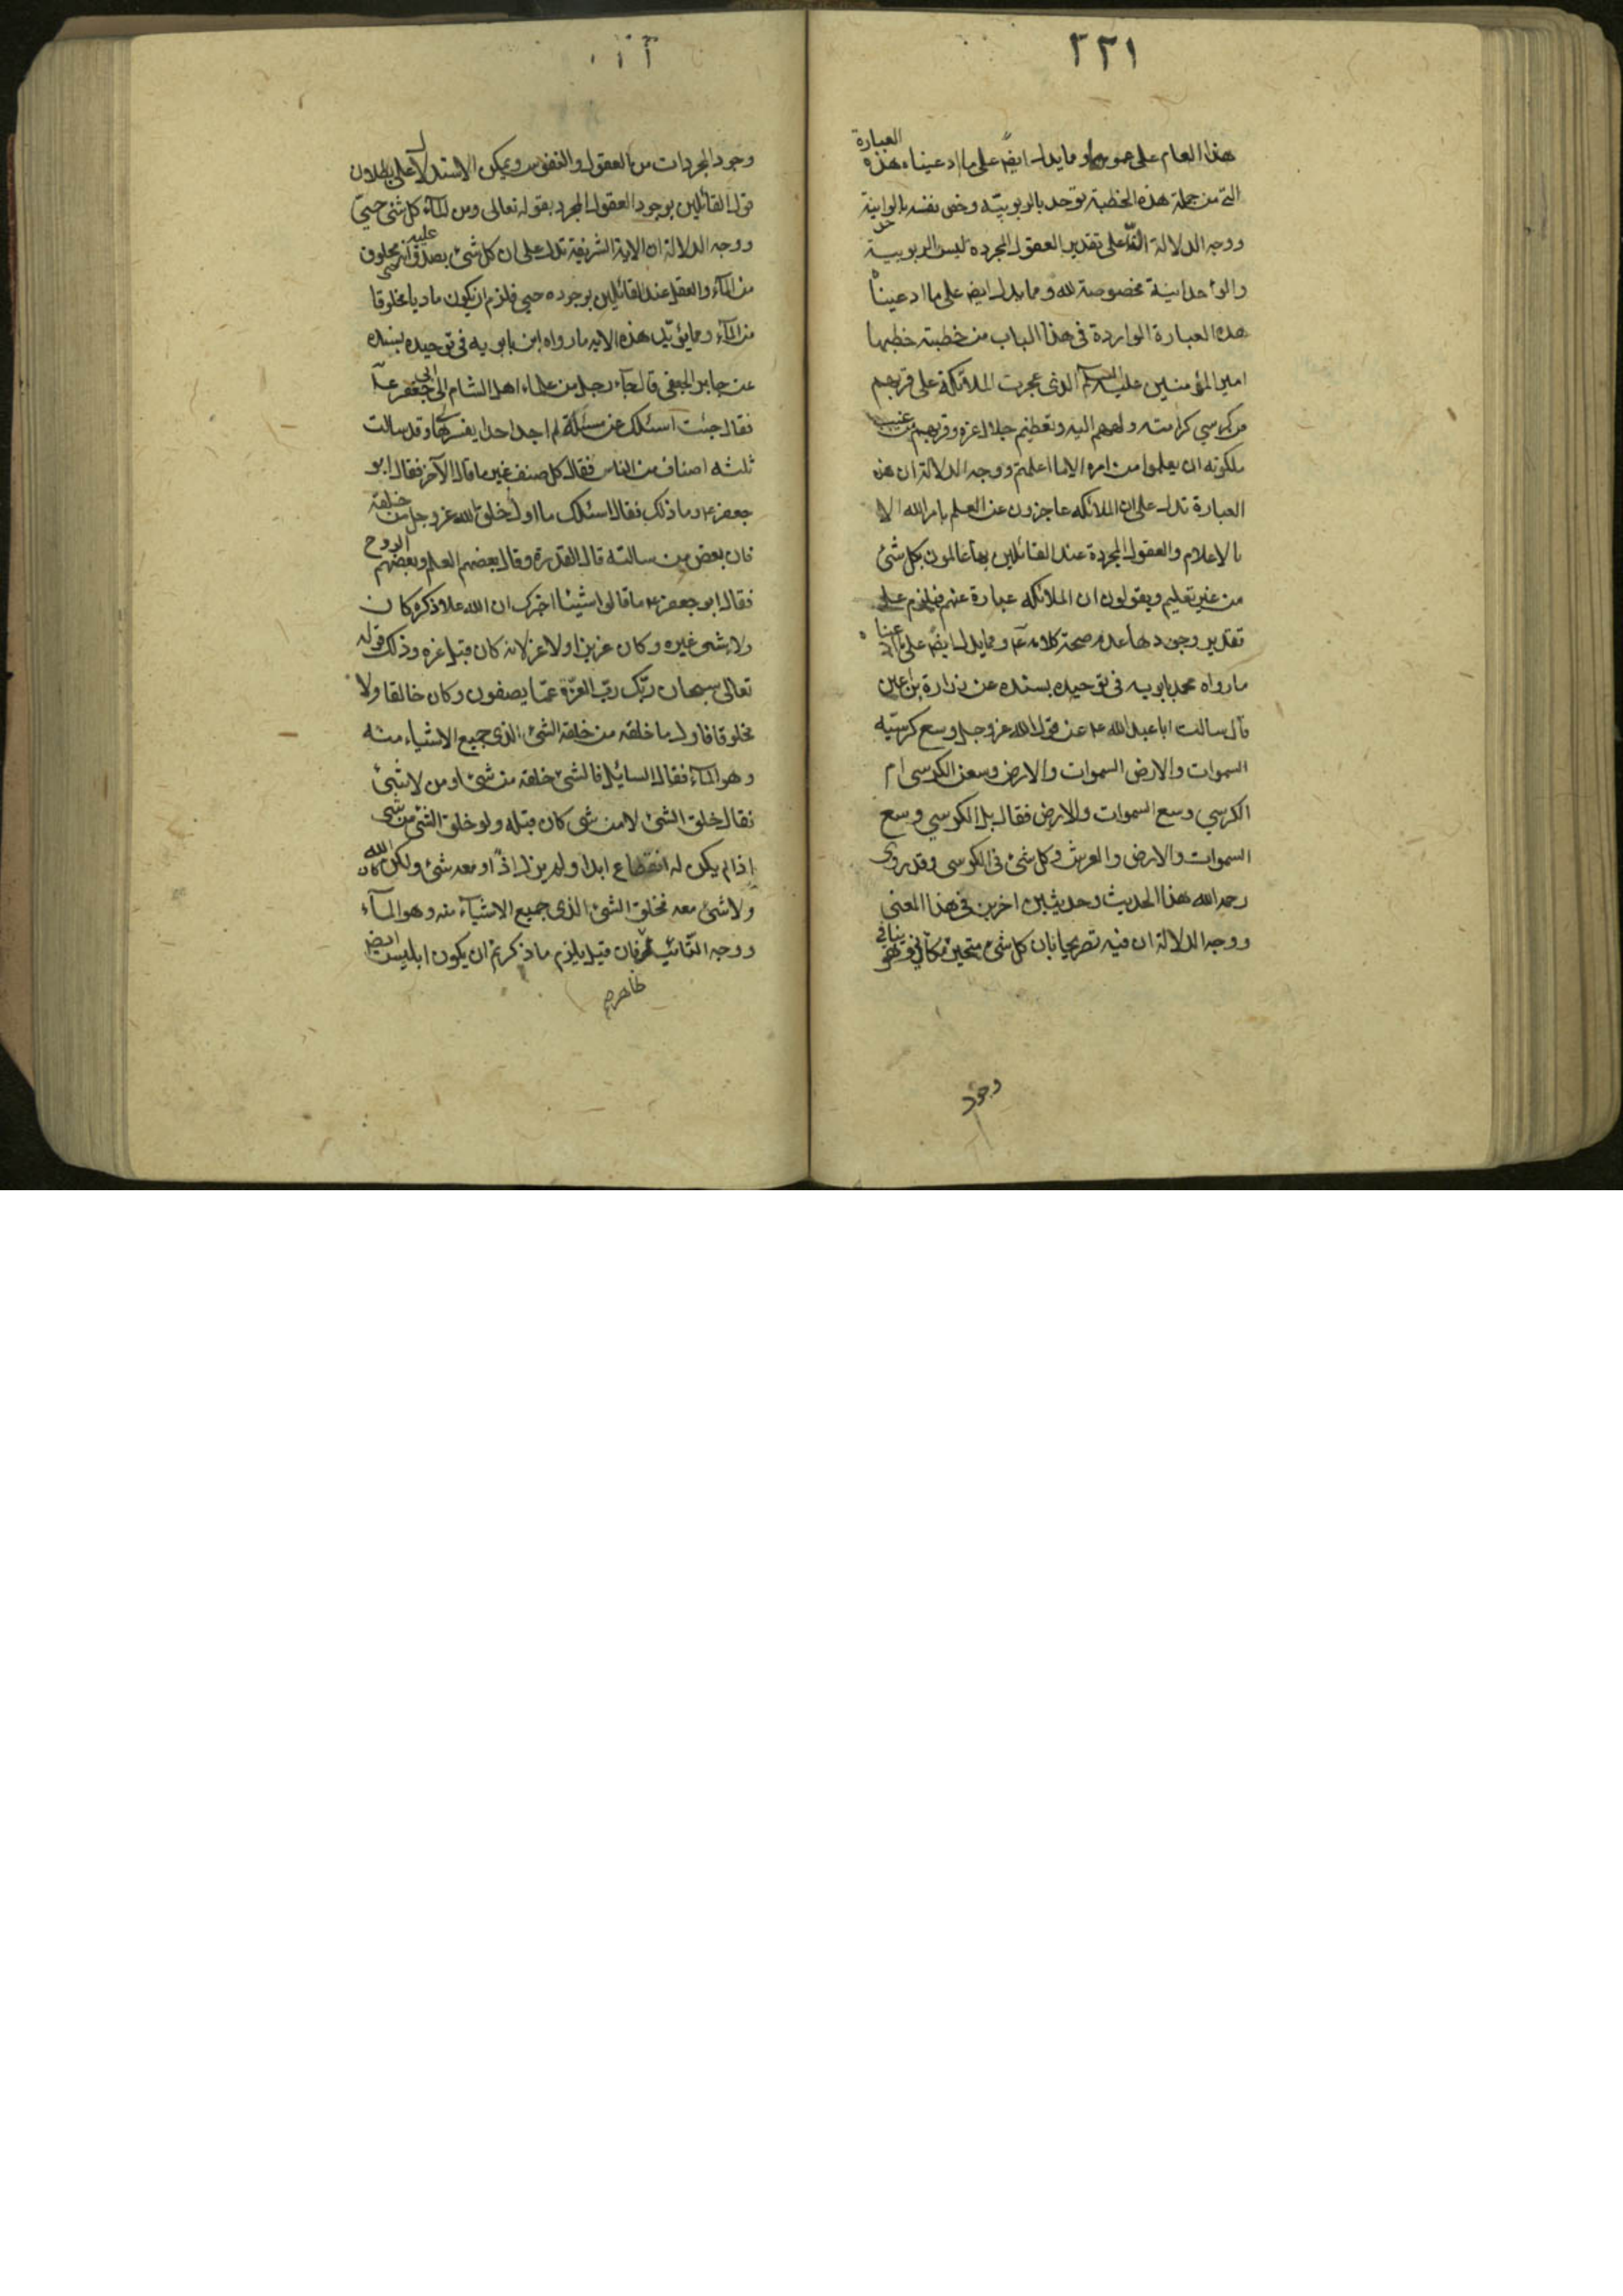 ٢٢١
هذا العام على عمومه ومما يدل ايضً على ما ادعيناه هذه العبارة
التى من جملة هذه الخطبة توحد بالربوبيّه وخص نفسه بالوحدانية
ووجه الدلالة انه على تقدير العقول المجرده ليس الربوبية
والواحدانية مخصوصة لله ومما يدل ايض على ما ادعيناه
هذه العبارة الواردة فى هذا الباب من خطبته خطبها
امير المؤمنين عليه السلام الذى عجزت الملائكة على قربهم
من كرسي كرامته و ولههم اليه وتعظيم جلال عزه وقربهم من غيب
ملكوته ان يعلموا من امره الا ما اعلمهم ووجه الدلالة ان هذه
العبارة تدل على ان الملائكه عاجزون عن العلم بامر الله الا
بالاعلام والعقول المجردة عند القائلين بها عالمون بكل شئ
من غير تعليم ويقولون ان الملائكه عبارة عنهم فيلزم على
تقدير وجودها عدم صحة كلامه ع ومما يدل ايضً على ما ادعيناه
مارواه محمد بابويه فى توحيده بسنده عن زرارة بن اعين
قال سالت ابا عبد الله ع عن قول الله عز وجل وسع كرسيّه
السموات والارض السموات والارض وسعن الكرسى ام
الكرسي وسع السموات والارض فقال بل الكرسي وسع
السموات والارض والعرش وكل شئ فى الكرسى وقد روى
رحمه الله هذا الحديث وحديثين اخرين فى هذا المعنى
ووجه الدلالة ان فيه تصريحا بان كل شئ متحيز مكانى وهو ينافى
وجود
وجود المجردات من العقول والنفوس ويمكن الاستدلال على بطلان
قول القائلين بوجود العقول المجرد بقوله تعالى ومن المآء كل شئ حىّ
ووجه الدلالة ان الاية الشريفة تدل على ان كل شئ يصدق عليه انه حى مخلوق
من المآء والعقل عند القائلين بوجوده حيى فلزم ان يكون ماديا مخلوقا
من المآء ومما يؤيّد هذه الايه مارواه ابن بابويه فى توحيده بسنده
عن جابر الجعفى قال جآء رجل من علماء اهل الشام الى ابى جعفر ع
فقال جئت اسئلك عن مسئلة لم اجد احدا يفسرها وقد سالت
ثلثه اصناف من الناس فقال كل صنف غير ما قال الآخر فقال ابو
جعفر ع وما ذلك فقال اسئلك ما اول خلق الله عز وجل من خلقه
فان بعض من سالته قال القدرة وقال بعضهم العلم وبعضهم الروح
فقال ابو جعفر ع ما قالوا شيئا اخبرك ان الله علا ذكره كان
ولا شى غيره وكان عزيزا ولا عز لانه كان قبل عزه وذلك قوله
تعالى سبحان ربّك ربّ العزّة عمّا يصفون وكان خالقا ولا
مخلوقا فاول ما خلقه من خلقه الشئ الذى جميع الاشياء منه
وهو المآء فقال السائل فالشئ خلقه من شئ او من لا شئ
فقال خلق الشئ لا من شى كان قبله ولو خلق الشئ من شى
اذا لم يكن له انقطاع ابدا ولم يزل اذً او معه شئ ولكن كان الله
ولا شئ معه فخلق الشئ الذى جميع الاشيآء منه وهو المآء
ووجه التّائيد ظاهر فان قيل يلزم ما ذكرتم ان يكون ابليس ايضً
ظاهر صح